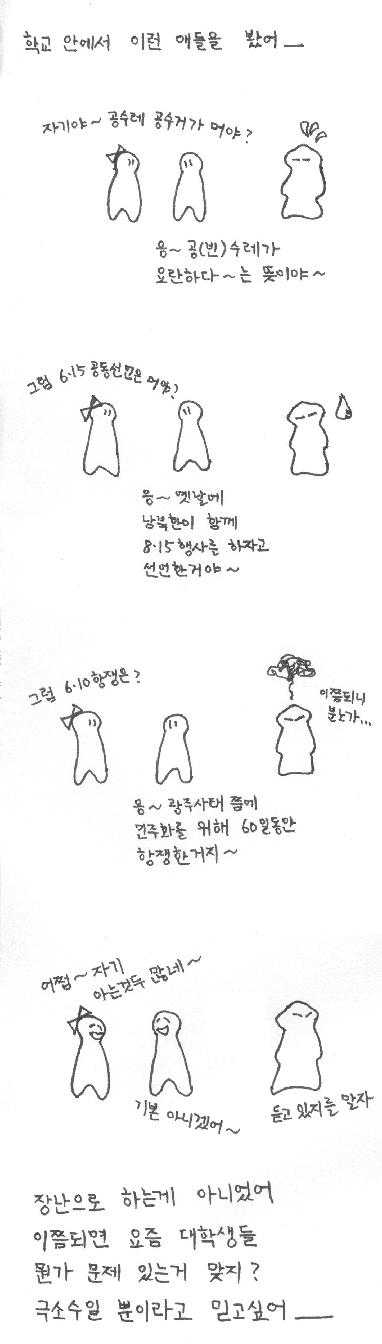 학교 안에서 이런 애들을 봤어__
자기야~ 공수레 공수거가 머야?
응~ 공(빈)수레가
요란하다~는 뜻이야~
그럼 6·15 공동선언은 머야?
응~ 옛날에
남북한이 함께
8·15 행사를 하자고
선언한거야~
그럼 6·10항쟁은?
이쯤되니
분노가...
응~ 광주사태 쯤에
민주화를 위해 60일동안
항쟁한거지~
어쩜~ 자기
아는것두 많네~
기본 아니겠어~
듣고 있지를 말자
장난으로 하는게 아니었어
이쯤되면 요즘 대학생들
뭔가 문제 있는거 맞지?
극소수일 뿐이라고 믿고싶어__